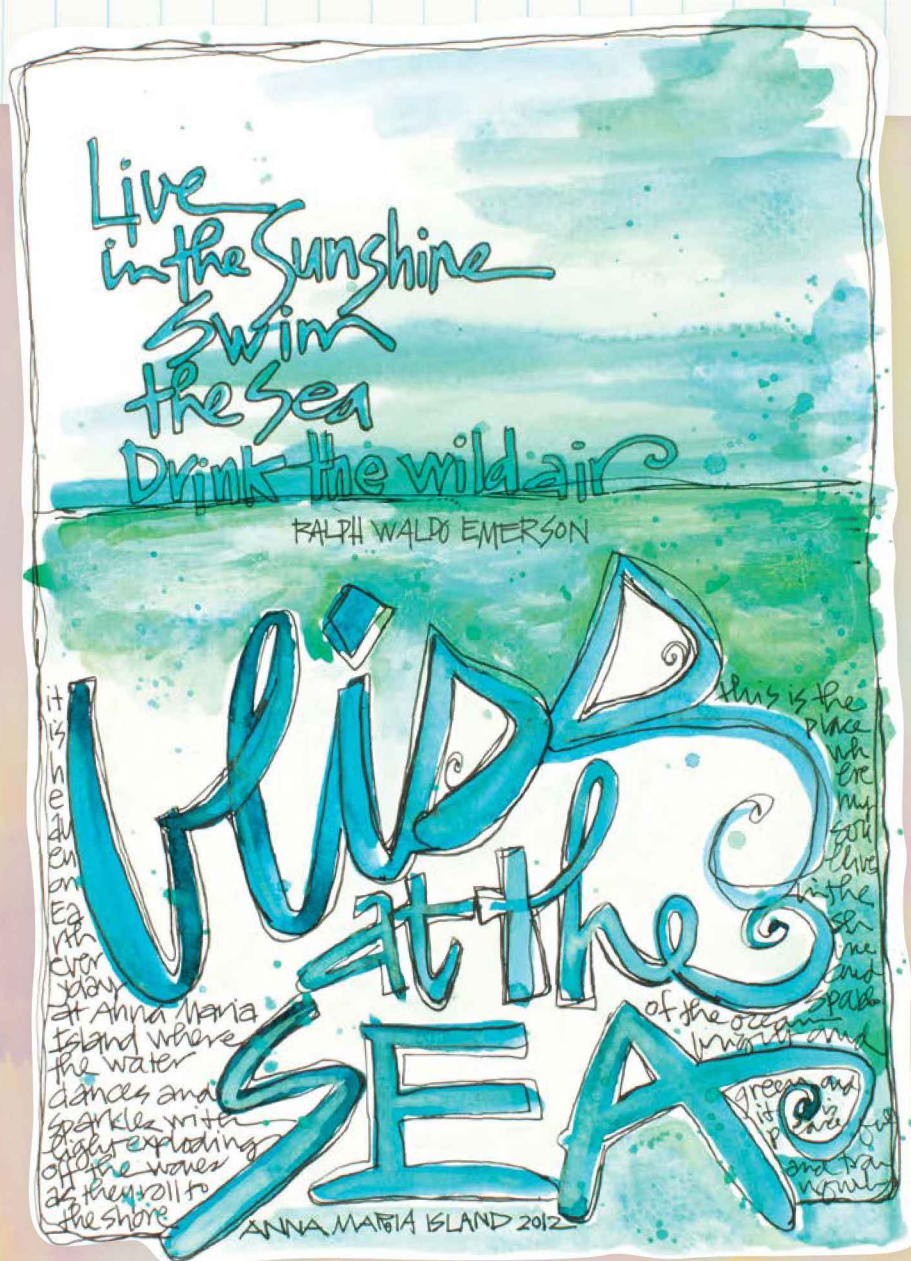 Live
in the Sunshine
Swim
the Sea
Drink the wild air
RALPH WALDO EMERSON
bliss
at the
SEA
it
is
h
e
av
en
on
Ea
rth
ever
yday
at Anna Maria
Island where
the water
dances and
sparkles with
light exploding
off the waves
as they roll to
the shore
this is the
place
wh
ere
my
soul
lives
in the
sh
ine
and
of the ocean
and
green and
it is
peaceful
and tran
ANNA MARIA ISLAND 2012